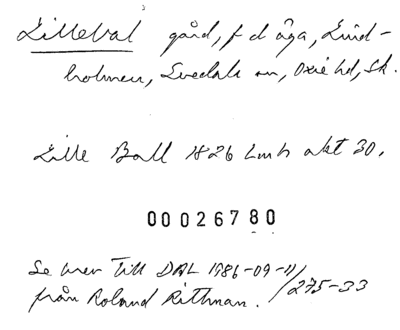 Lilleval gård, f d äga, Lind-
holmen, Svedala sn, Oxie hd, Sk.
Lille Ball 1826 Lmh akt 30.
00026780
Se brev till DAL 1986-09-11
från Roland Rittman. /275-33